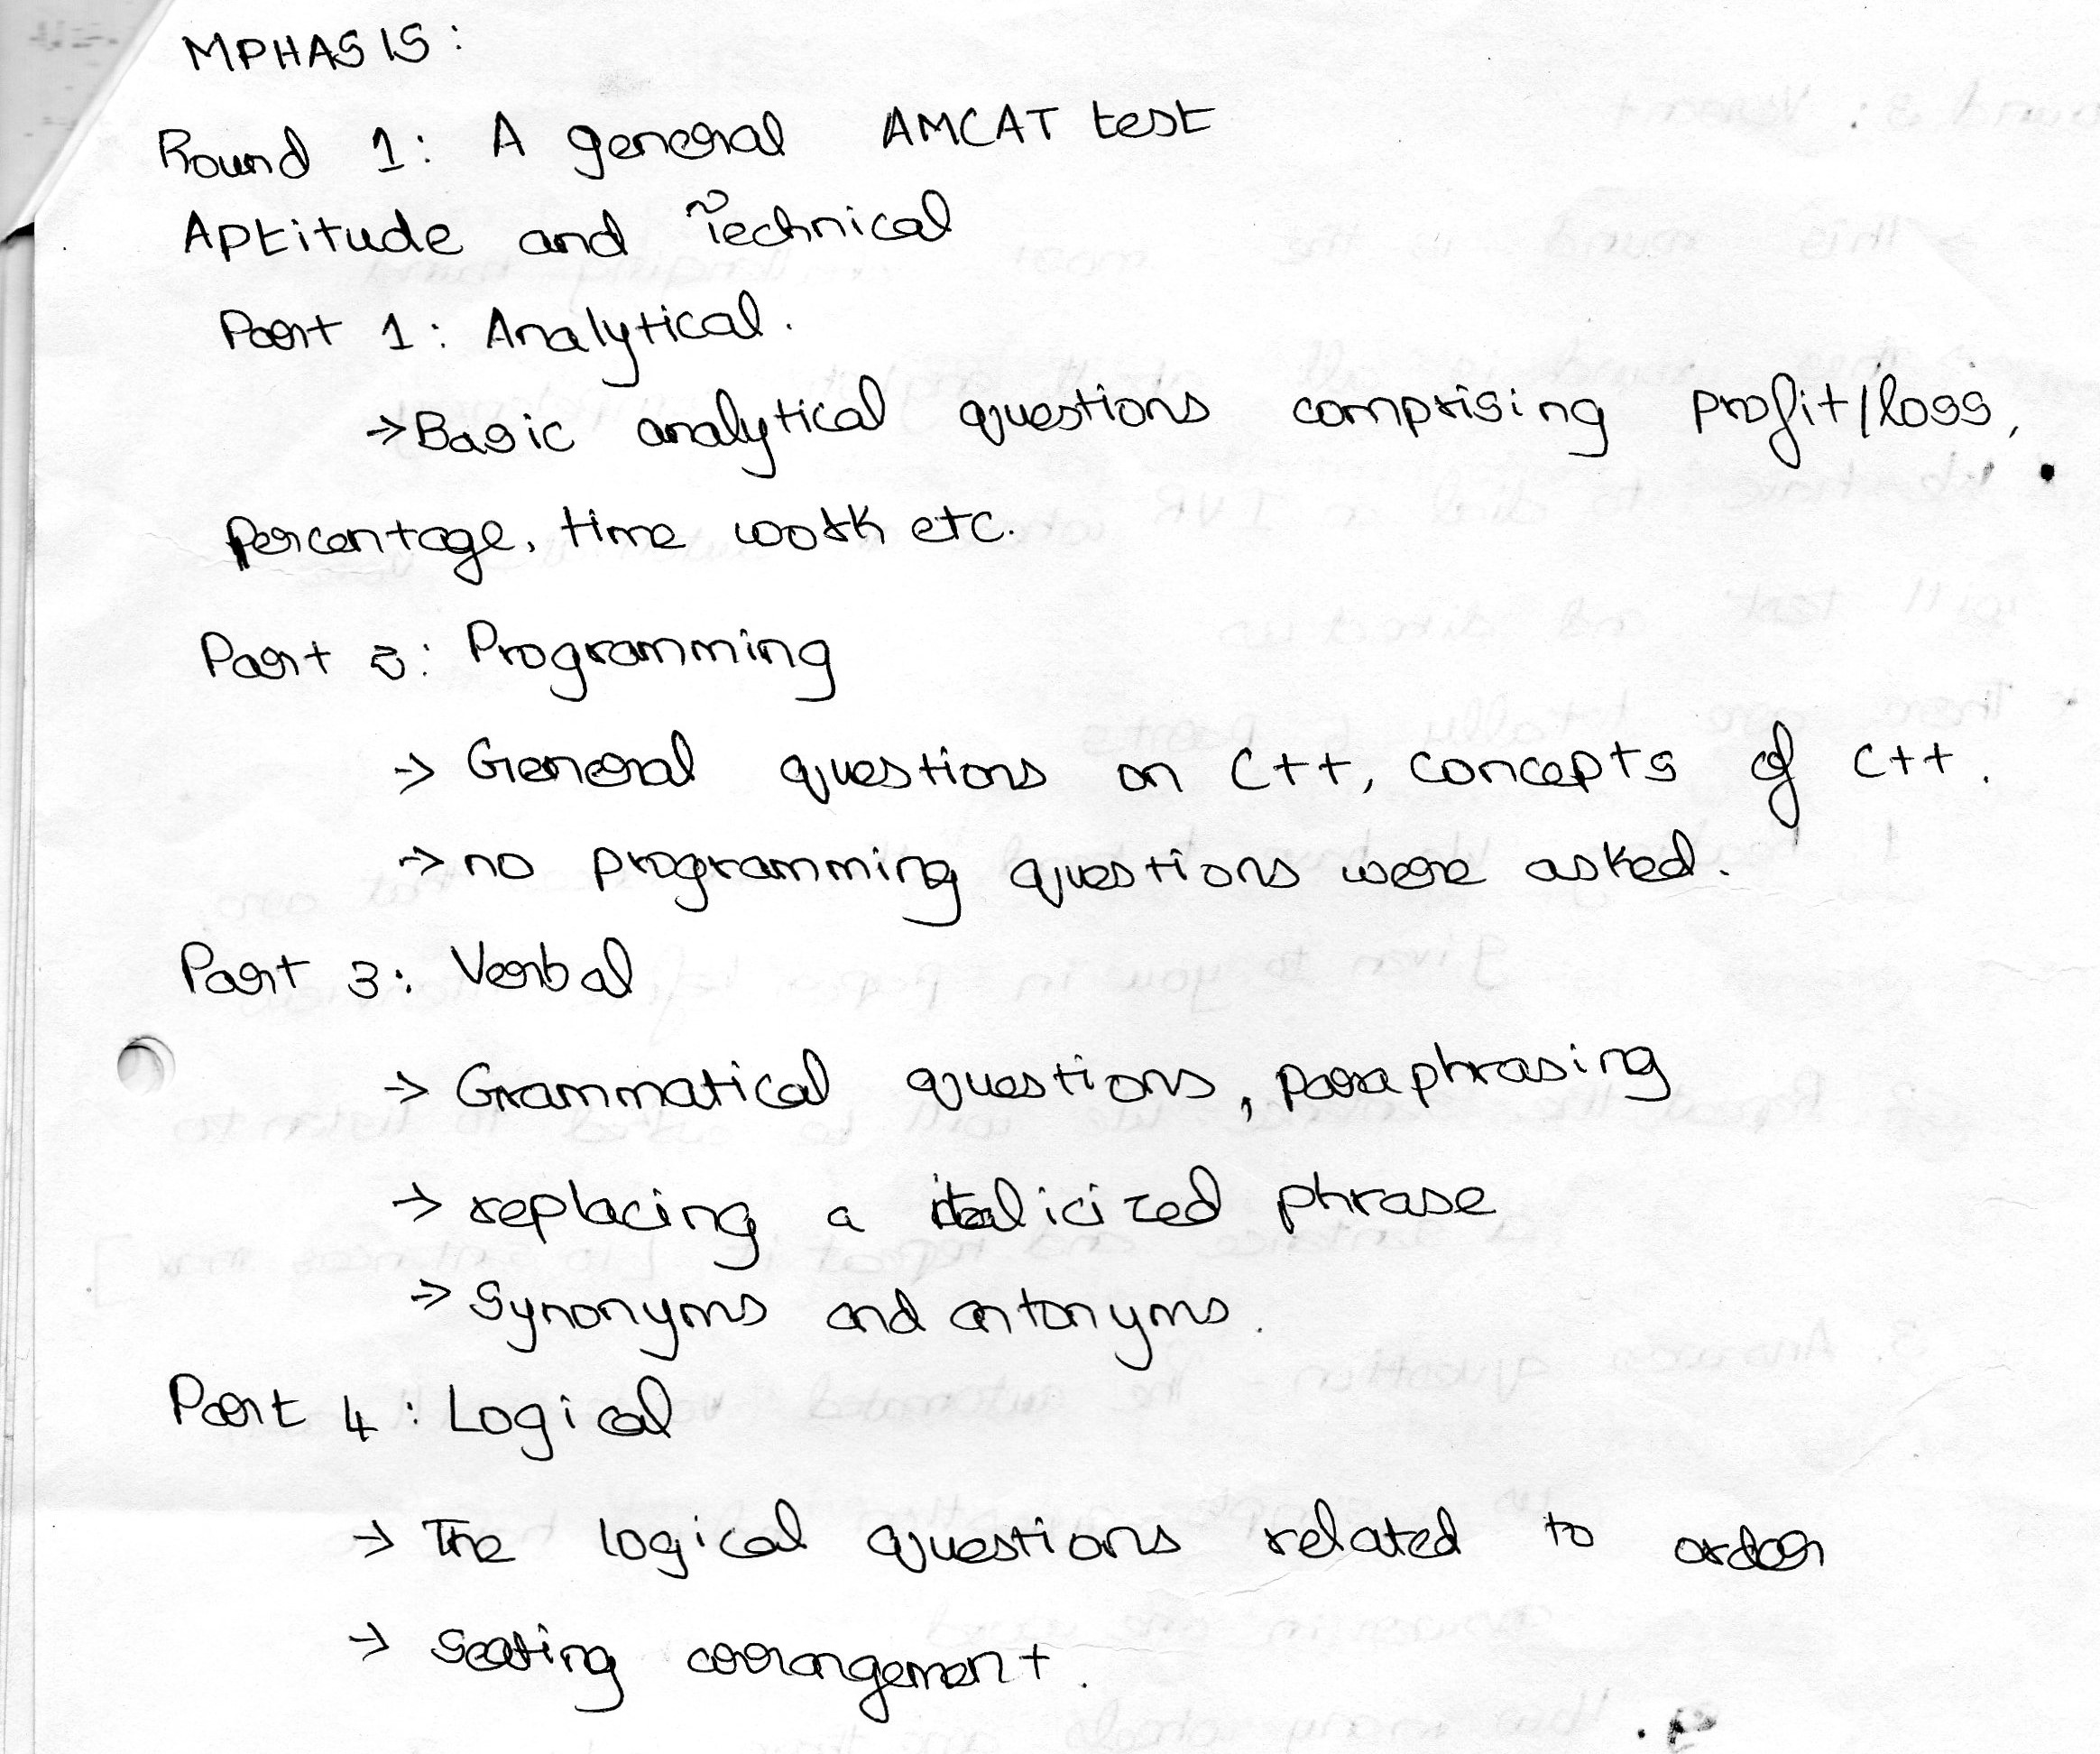 MPHASIS:
Round 1: A general AMCAT test
Aptitude and Technical
Part 1: Analytical.
→Basic analytical questions comprising profit/loss,
percentage, time work etc.
Part 2: Programming
→ General questions on C++, concepts of C++.
→ no programming questions were asked.
Part 3: Verbal
→ Grammatical questions, paraphrasing
→ replacing a italicized phrase
→ Synonyms and antonyms.
Part 4: Logical
→ The logical questions related to order
→ Seating arrangement.